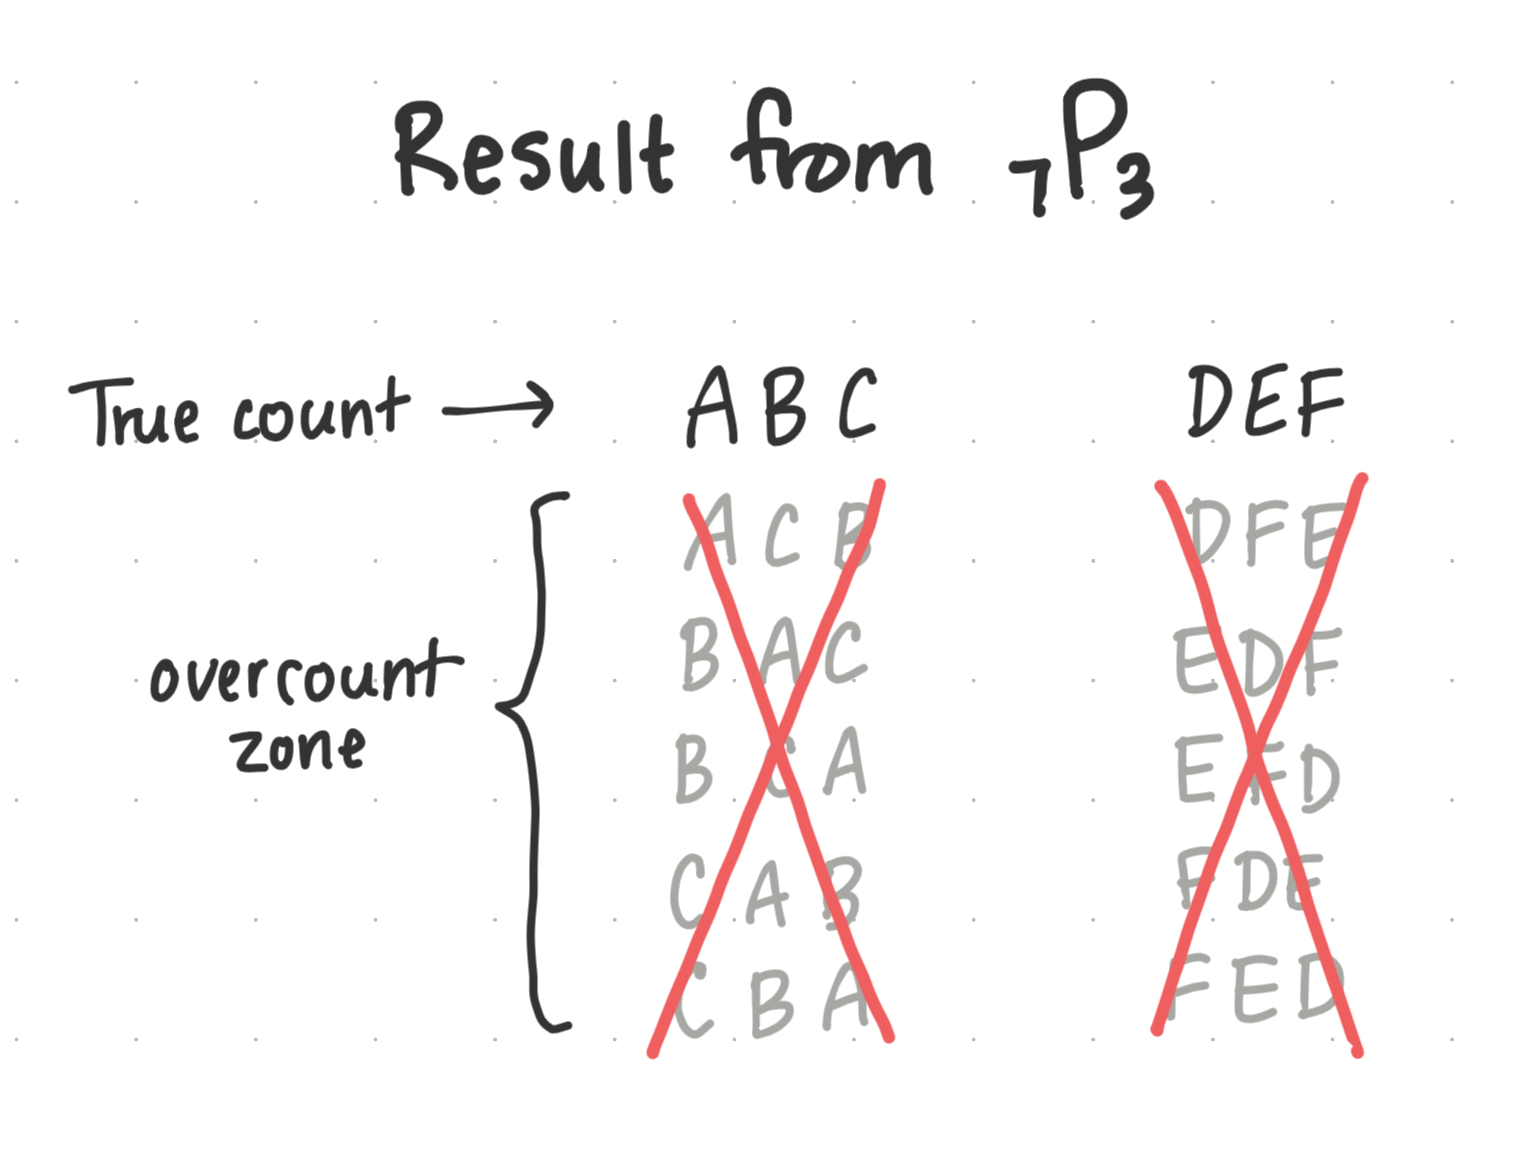 Result from ₇P₃
True count → ABC DEF
ACB DFE
BAC EDF
overcount
zone
BCA EFD
CAB FDE
CBA FED